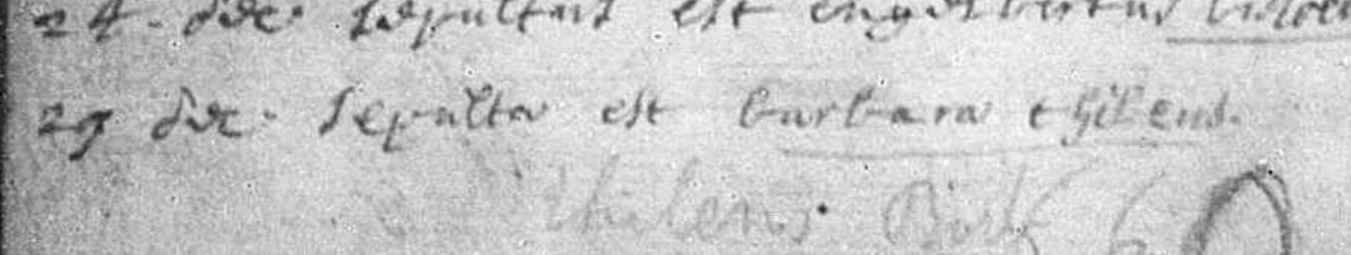 24. dec. sepultus est engelbertus
29 dec. sepulta est barbara thilens.
thilens